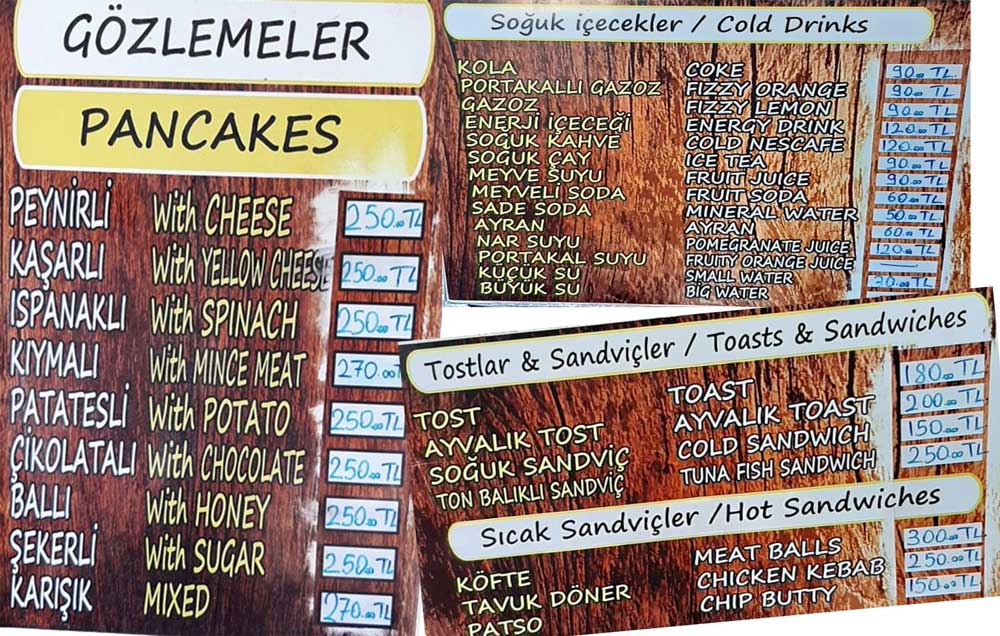 GÖZLEMELER
PANCAKES
PEYNİRLİ With CHEESE 250.00TL
KAŞARLI With YELLOW CHEESE 250.00 TL
ISPANAKLI With SPINACH 250.00 TL
KIYMALI With MINCE MEAT 270.00T
PATATESLİ With POTATO 250.00TL
ÇİKOLATALI With CHOCOLATE 250.00 TL
BALLI With HONEY 250.00 TL
ŞEKERLİ With SUGAR 250.00 TL
KARIŞIK MIXED 270.00TL
Soğuk içecekler / Cold Drinks
KOLA COKE 90.00 TL.
PORTAKALLI GAZOZ FIZZY ORANGE 90.00 TL
GAZOZ FIZZY LEMON 90.00 TL
ENERJİ İÇECEĞİ ENERGY DRINK 120.00 TL
SOĞUK KAHVE COLD NESCAFE 120.00 TL
SOĞUK ÇAY ICE TEA 90.00 TL
MEYVE SUYU FRUIT JUICE 90.00 TL
MEYVELİ SODA FRUIT SODA 60.00 TL
SADE SODA MINERAL WATER 50.00 TL.
AYRAN AYRAN 60.00 TL
NAR SUYU POMEGRANATE JUICE 120.00 TL
PORTAKAL SUYU FRUITY ORANGE JUICE —
KÜÇÜK SU SMALL WATER 20.00 TL
BÜYÜK SU BIG WATER
Tostlar & Sandviçler / Toasts & Sandwiches
TOST TOAST 180.00 TL
AYVALIK TOST AYVALIK TOAST 200.00 TL
SOĞUK SANDVİÇ COLD SANDWICH 150.00 TL
TON BALIKLI SANDVİÇ TUNA FISH SANDWICH 250.00 TL
Sıcak Sandviçler /Hot Sandwiches
KÖFTE MEAT BALLS 300.00 TL
TAVUK DÖNER CHICKEN KEBAB 250.00 TL
PATSO CHIP BUTTY 150.00 TL